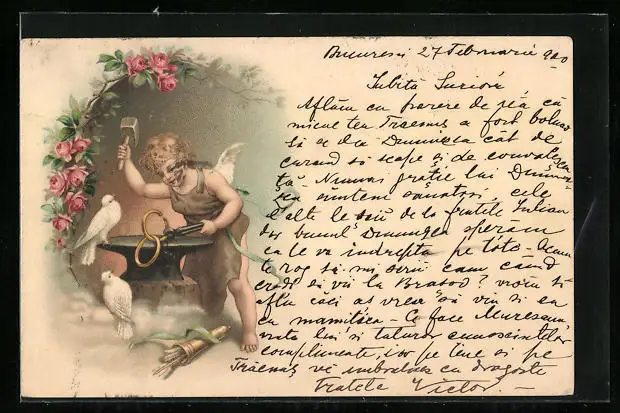 Bucuresi 27 Februarie 900
Iubită
Aflăm cu părere de rěă că
micul teu Traenuș a fost bolnav
să a dea Dumnezeu cât de
curand să scape și de convalescen
tă. Numai grație lui Dumne
zeu suntem sănătoși, cele
l'alt le știi de la fratele Iulian
dar bunul Dumnezeu sperăm
ca le va indrepta pe tote. Acum
te rog să-mi scrii cam când
crezi să vii la Brasov? vroiu să
aflu căci as vrea să viu și eu
cu mamițica. Ce face Muresianu,
lui și tuturor cunoscintelor
complimente, iar pe tine și pe
Traenuș vě imbratisez cu dragoste
fratele Victor. —